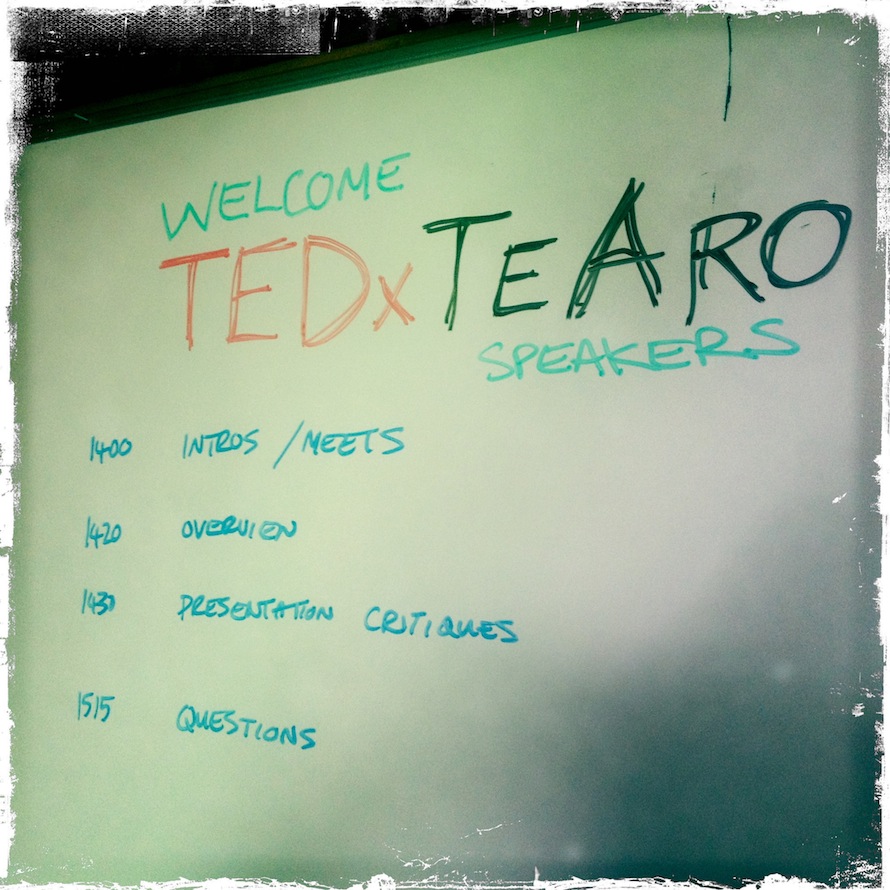 WELCOME
TEDxTeARO
SPEAKERS
1400 INTROS / MEETS
1420 OVERVIEW
1430 PRESENTATION CRITIQUES
1515 QUESTIONS